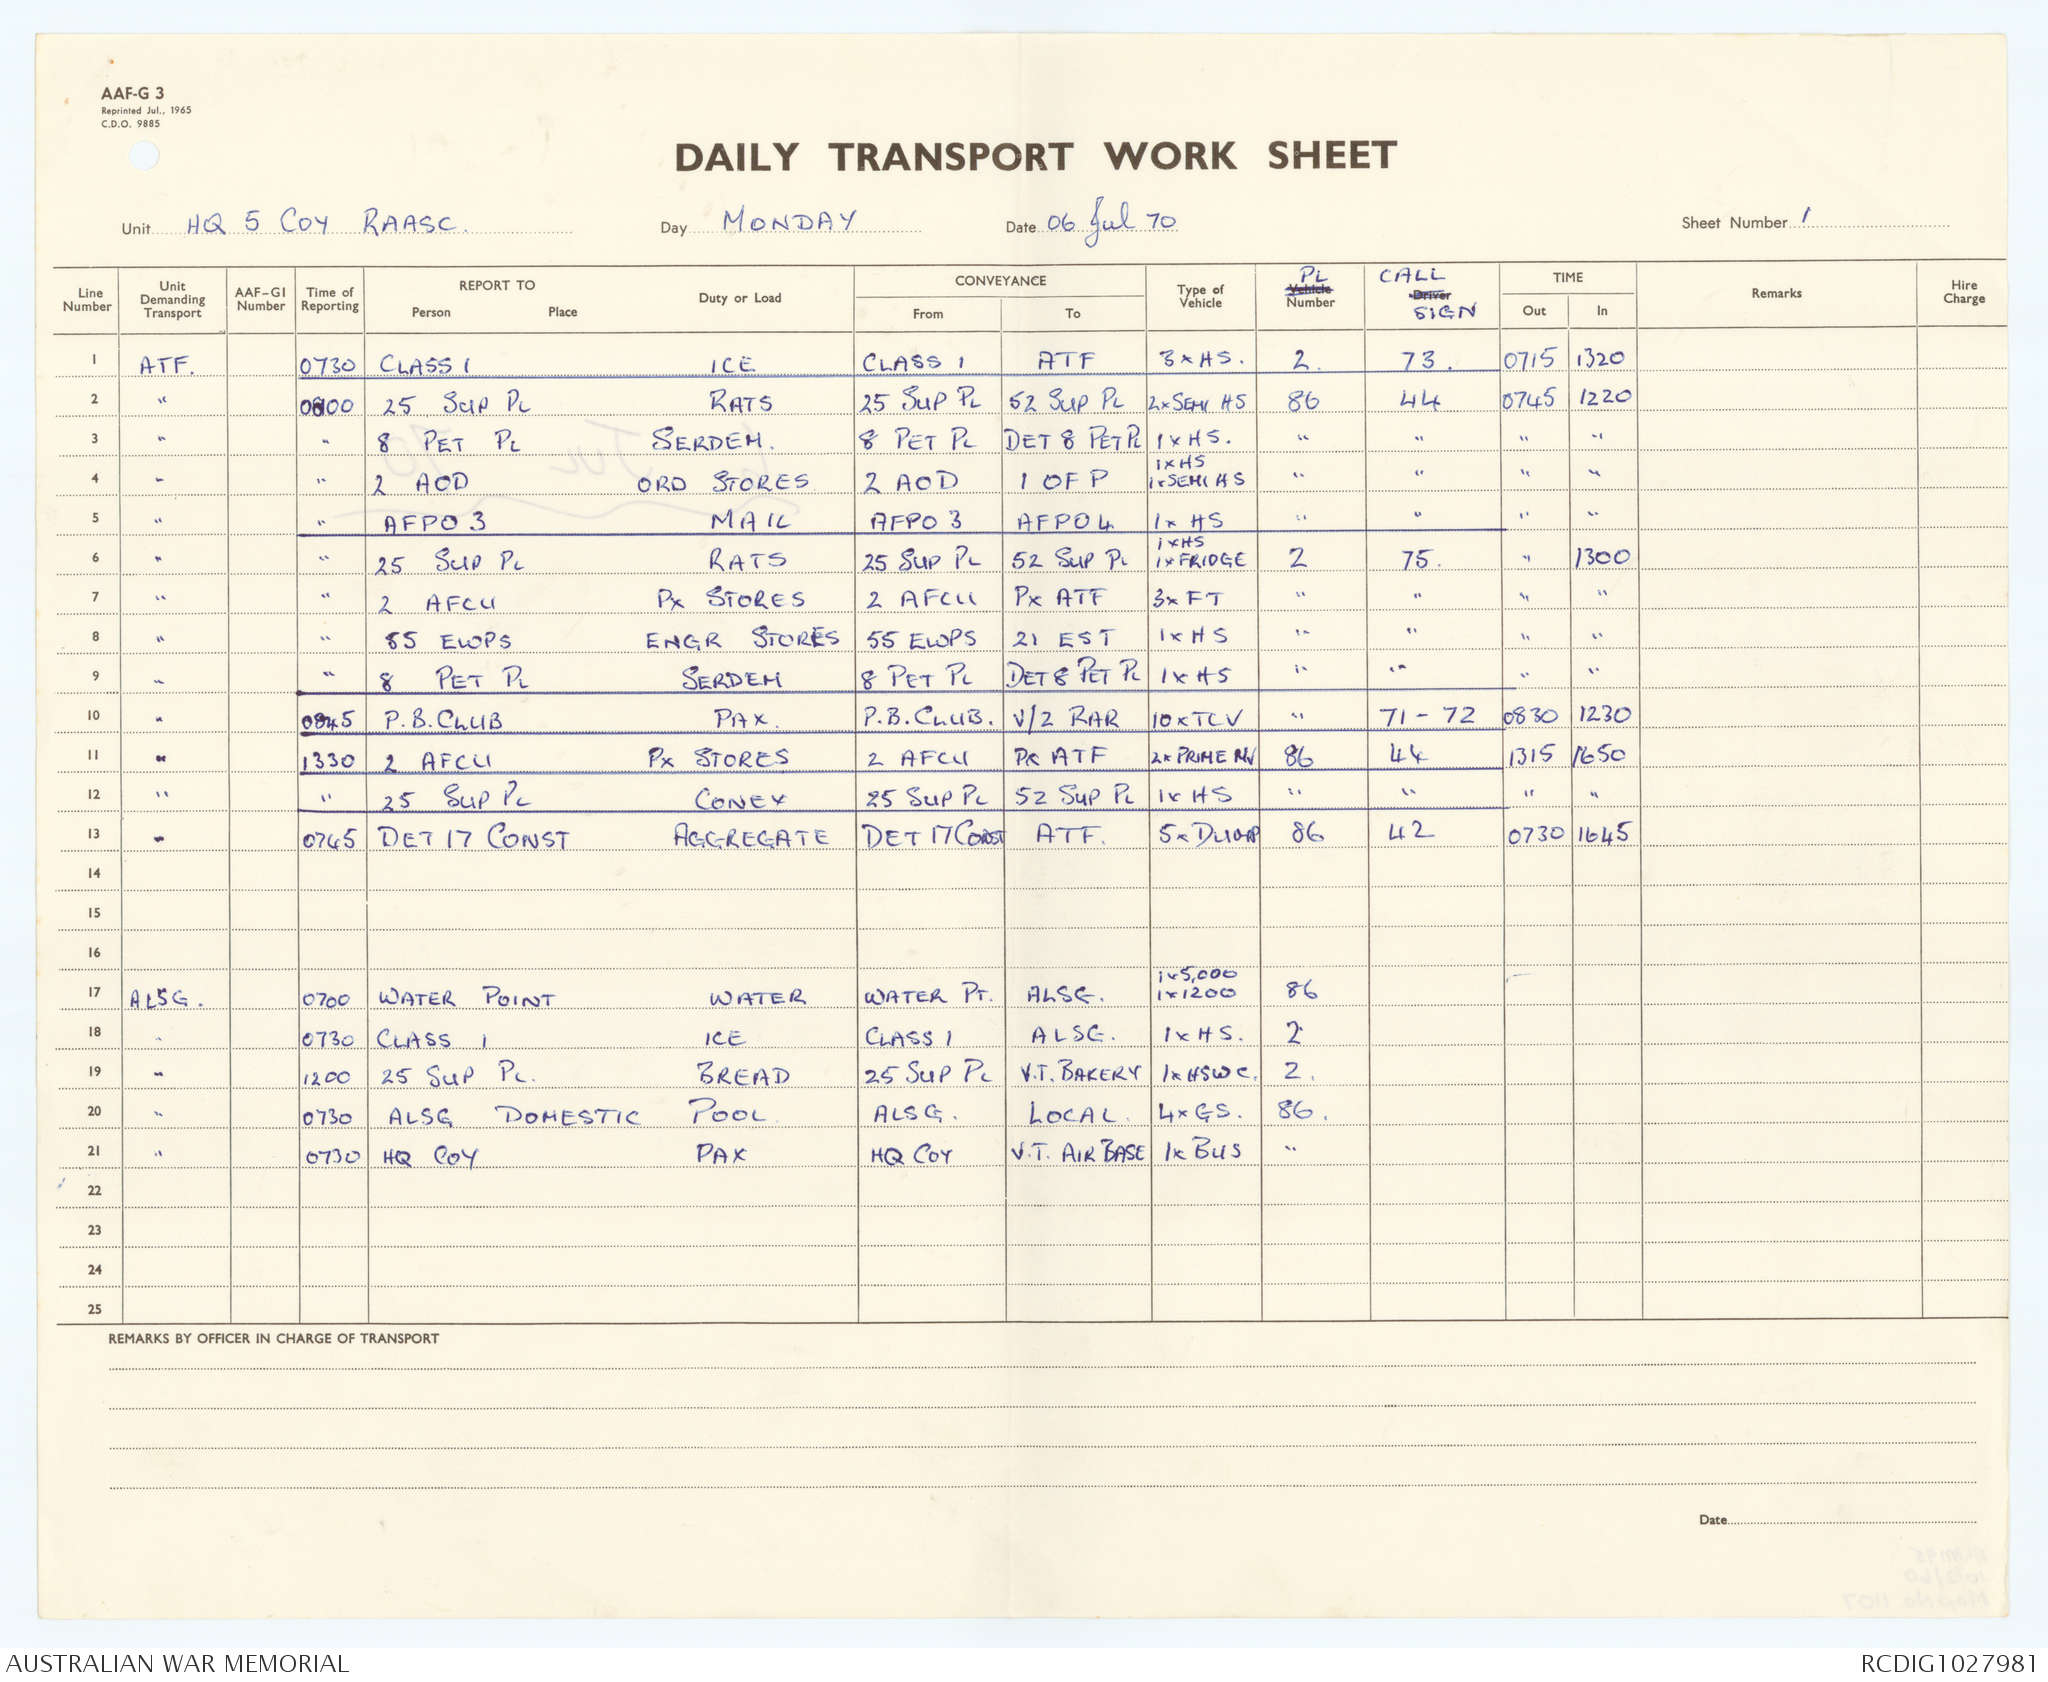 AAF-G 3
Reprinted Jul., 1965
C.D.O. 9885
DAILY TRANSPORT WORK SHEET
Unit HQ 5 COY RAASC. Day MONDAY Date 06 Jul 70 Sheet Number 1
Line Number Unit Demanding Transport AAF-G1 Number Time of Reporting REPORT TO Person Place Duty or Load CONVEYANCE From To Type of Vehicle PL Vehicle Number CALL Driver SIGN TIME Out In Remarks Hire Charge
1 ATF. 0730 CLASS 1 ICE CLASS 1 ATF 3 x HS. 2. 73. 0715 1320
2 " 0800 25 SUP PL RATS 25 SUP PL 52 SUP PL 2x SEMI HS 86 44 0745 1220
3 " " 8 PET PL SERDEM. 8 PET PL DET 8 PET PL 1 x HS. " " " "
4 " " 2 AOD ORD STORES 2 AOD 1 OFP 1xHS 1xSEMI HS " " " "
5 " " AFPO 3 MAIL AFPO 3 AFPO 4 1x HS " " " "
6 " " 25 SUP PL RATS 25 SUP PL 52 SUP PL 1xHS 1xFRIDGE 2 75. " 1300
7 " " 2 AFCU PX STORES 2 AFCU PX ATF 3x FT " " " "
8 " " 55 EWPS ENGR STORES 55 EWPS 21 EST 1x HS " " " "
9 " " 8 PET PL SERDEM 8 PET PL DET 8 PET PL 1 x HS " " " "
10 " 0845 P.B. CLUB PAX. P.B. CLUB. V/2 RAR 10 x TCV " 71 - 72 0830 1230
11 " 1330 2 AFCU PX STORES 2 AFCU PX ATF 2x PRIME MV 86 44 1315 1650
12 " " 25 SUP PL CONEX 25 SUP PL 52 SUP PL 1x HS " " " "
13 " 0745 DET 17 CONST AGGREGATE DET 17 CONST ATF. 5 x DUMP 86 42 0730 1645
14
15
16
17 ALSG. 0700 WATER POINT WATER WATER PT. ALSG. 1x5,000 1x1200 86
18 " 0730 CLASS 1 ICE CLASS 1 ALSG. 1x HS. 2
19 " 1200 25 SUP PL. BREAD 25 SUP PL V.T. BAKERY 1xHSWC. 2.
20 " 0730 ALSG DOMESTIC POOL ALSG. LOCAL. 4x GS. 86.
21 " 0730 HQ COY PAX HQ COY V.T. AIR BASE 1x BUS "
22
23
24
25
REMARKS BY OFFICER IN CHARGE OF TRANSPORT
Date
AUSTRALIAN WAR MEMORIAL RCDIG1027981